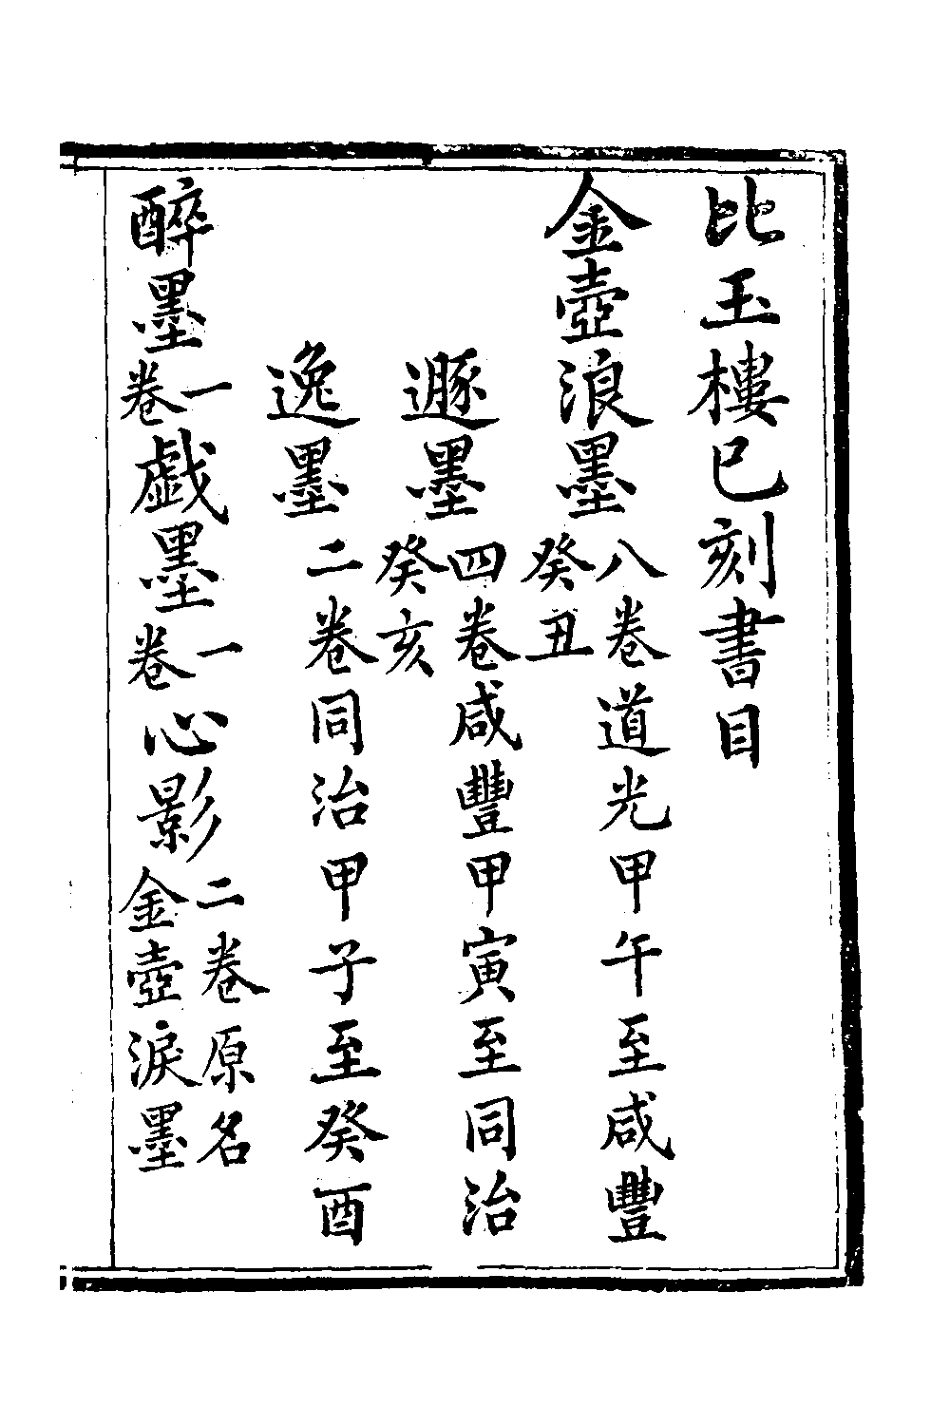 比玉樓已刻書目
金壺浪墨八卷道光甲午至咸豐
癸丑
遯墨四卷咸豐甲寅至同治
癸亥
逸墨二卷同治甲子至癸酉
醉墨一卷戲墨一卷心影二卷原名
金壺淚墨